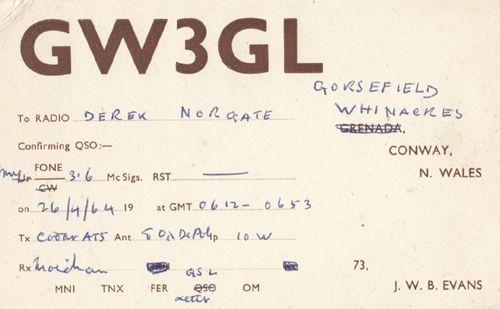 GW3GL
GORSEFIELD
To RADIO DEREK NORGATE WHINACRES
GRENADA,
Confirming QSO:—
CONWAY,
my Ur FONE 3.6 Mc Sigs. RST —
CW
N. WALES
on 26/4/64 19 at GMT 0612 - 0653
Tx CODAR AT5 Ant 80 M DiPole i/p 10 W
Rx QSL 73,
MNI TNX FER QSO OM J. W. B. EVANS
Letter